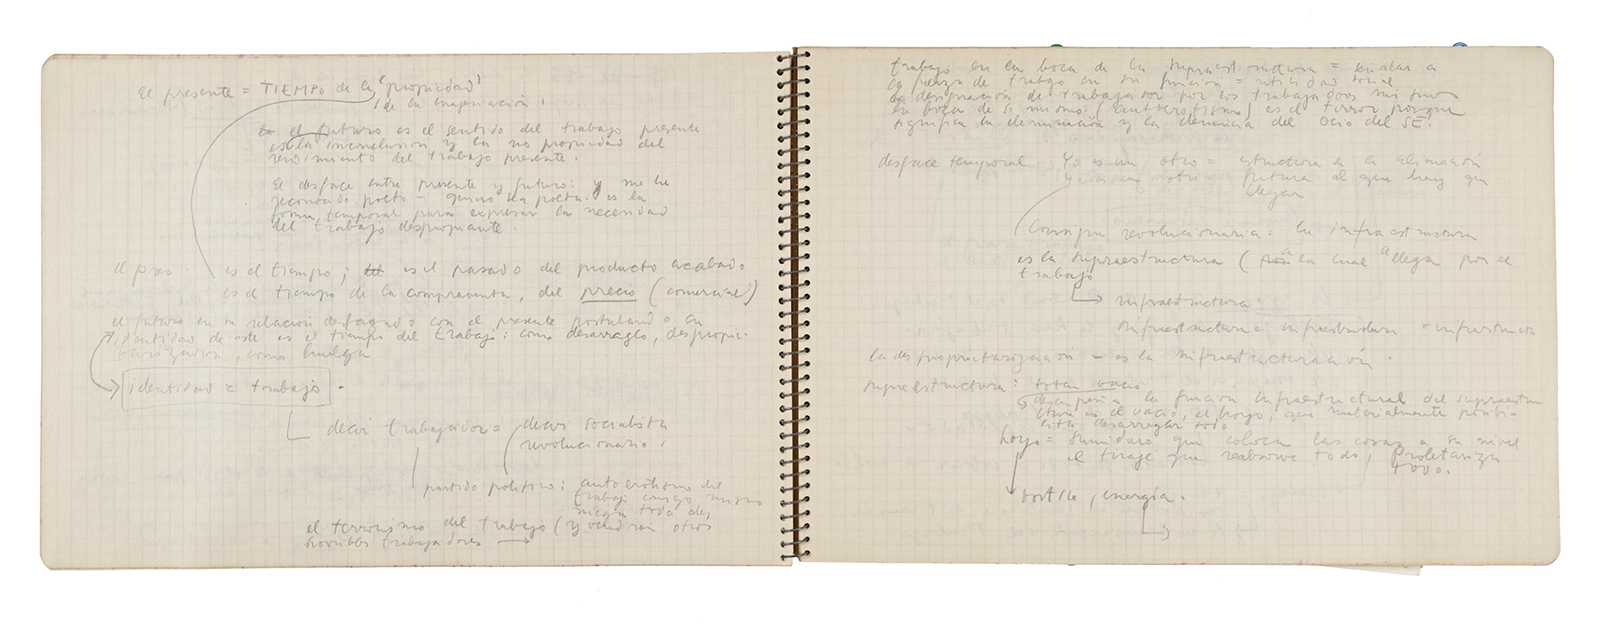 El presente = TIEMPO de la "propiedad"
, de la enajenación.
en el futuro es el sentido del trabajo presente
es la inconclusion y la no propiedad del
rendimiento del trabajo presente.
El desface entre presente y futuro: y me he
reconocido poeta - quiero ser poeta: es la
forma temporal para expresar la necesidad
del trabajo despropiante.
el pres. : es el tiempo; es el pasado del producto acabado
es el tiempo de la compraventa, del precio (comercial)
el futuro en su relación desfasado con el presente postulando su
identidad de este es el tiempo del trabajo: como desarraigo, despropie-
tarización, como huelga
identidad = trabajo.
decir trabajador = decir socialista
revolucionario.
partido politico: autoerotismo del
trabajo consigo mismo
niega toda des
el terrorismo del trabajo (y vendran otros
horribles trabajadores
trabajo en la boca de la supraestructura = señalar a
la fuerza de trabajo en su función = utilidad social
la designación de trabajador por los trabajadores mismos
en boca de si mismo: (autoerotismo) es el terror porque
significa la eliminación y la denuncia del Ocio del SE.
desface temporal Yo es un otro = estructura de la alienación
Yo es un otro = futura al que hay que
llegar
Consigna revolucionaria: la infraestructura
es la supraestructura ( a la cual llega por el
trabajo
infraestructura:
infraestructura infraestructura - infraestructura
la desproprietarización - es la infraestructuración.
supraestructura: total vacio
desempeña la función infraestructural del supraestru
ctura es el vacío, el hoyo, que materialmente posibi-
lita desarregar todo
hoyo = sumidero que coloca las cosas a su nivel
el tiraje que reabsorve todo, Proletariza
todo.
vortice, energía.